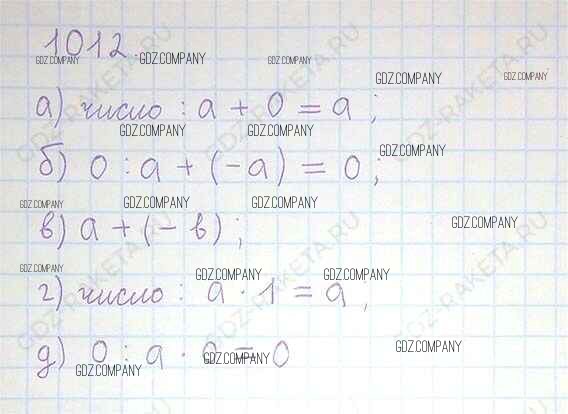 1012.
GDZ.COMPANY GDZ.COMPANY GDZ.COMPANY
GDZ.COMPANY GDZ.COMPANY
а) число : а + 0 = а ;
GDZ.COMPANY GDZ.COMPANY
б) 0 : а + (-а) = 0 ;
GDZ.COMPANY
GDZ.COMPANY GDZ.COMPANY GDZ.COMPANY
в) а + (- в) ;
GDZ.COMPANY
GDZ.COMPANY GDZ.COMPANY GDZ.COMPANY
г) число : а · 1 = а ,
д) 0 : а · 0 = 0
GDZ.COMPANY GDZ.COMPANY GDZ.COMPANY
GDZ-RAKETA.RU GDZ-RAKETA.RU
GDZ-RAKETA.RU GDZ-RAKETA.RU